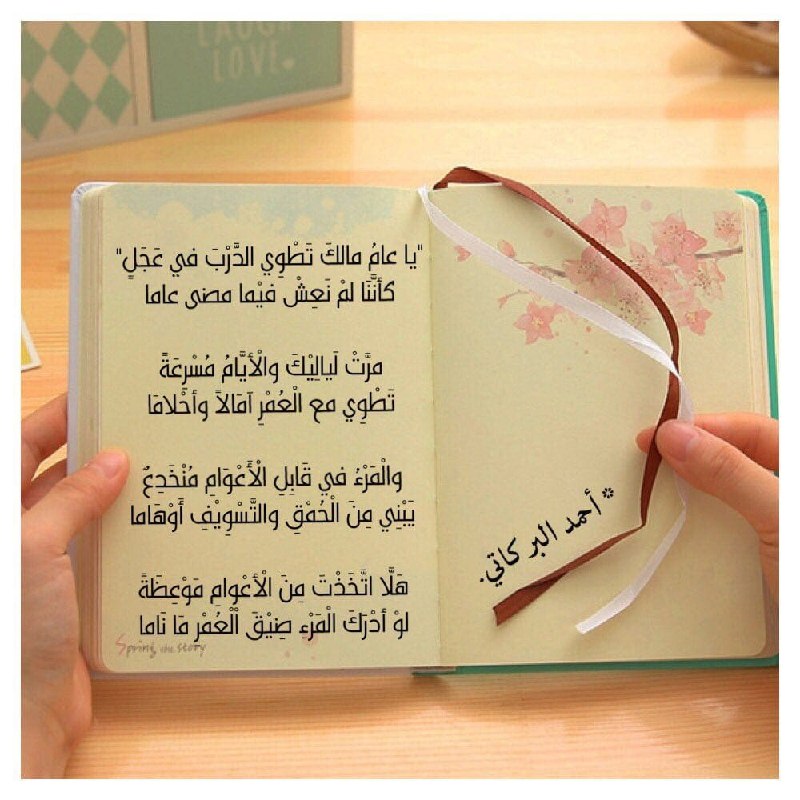 LAUGH
LOVE.
"يا عامُ مالكَ تَطْوِي الدَّرْبَ في عَجَلٍ"
كأنَّنَا لمْ نَعِشْ فيْما مضى عاما
مرَّتْ لَيالِيْكَ والْأيَّامُ مُسْرِعَةً
تَطْوِي مع الْعُمْرِ آمَالاً وأحْلامَا
والْمَرْءُ في قَابِلِ الْأَعْوَامِ مُنْخَدِعٌ
يَبْنِي مِنَ الْحُمْقِ والتَّسْوِيْفِ أَوْهَاما
هَلَّا اتَّخَذْتَ مِنَ الْأعْوامِ مَوْعِظَةً
لوْ أدْرَكَ الْمَرْء ضِيْقَ الْعُمْرِ مَا نَاما
Spring the story
* أحمد البركاتي.